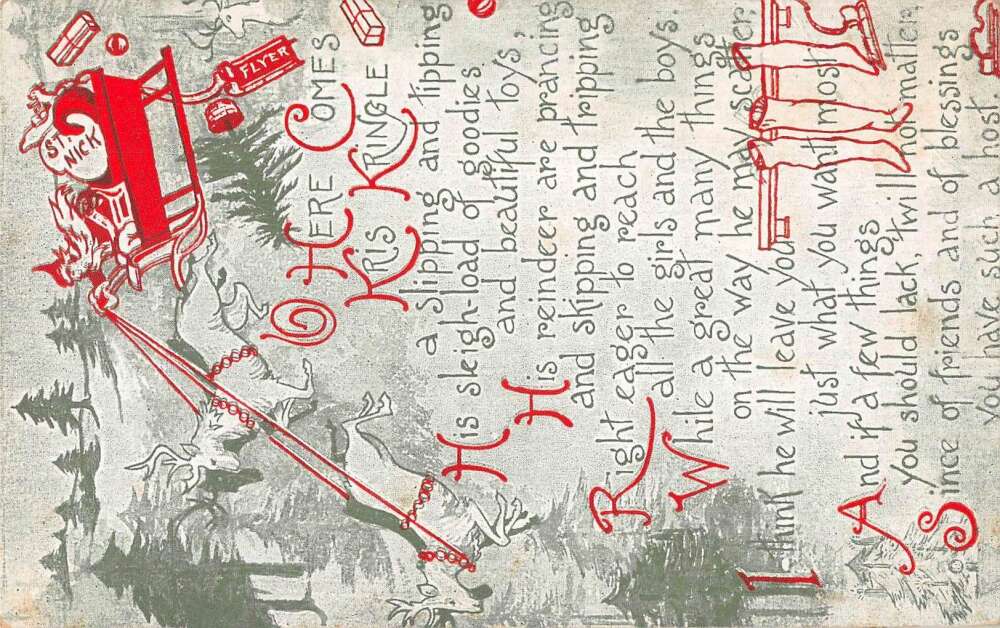 ST.
NICK
FLYER
O HERE COMES
KRIS KRINGLE
a slipping and tipping
His sleigh-load of goodies
and beautiful toys,
His reindeer are prancing
and skipping and tripping
Right eager to reach
all the girls and the boys.
While a great many things
on the way he may scatter,
I think he will leave you
just what you want most
And if a few things
you should lack, 'twill not matter,
Since of friends and of blessings
you have such a host